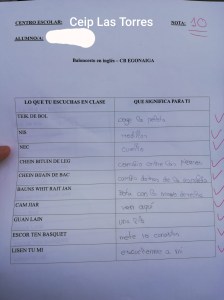 Ceip Las Torres
CENTRO ESCOLAR:
NOTA: 10
ALUMNO/A:
Baloncesto en inglés – CB EGONAIGA
LO QUE TU ESCUCHAS EN CLASE
QUE SIGNIFICA PARA TI
TEIK DE BOL
coge la pelota
NIS
rodillas
NEC
cuello
CHEIN BITUIN DE LEG
cambio entre las piernas
CHEIN BIJAIN DE BAC
cambio detras de la espalda
BAUNS WHIT RAIT JAN
bota con la mano derecha
CAM JIAR
ven aquí
GUAN LAIN
una fila
ESCOR TEN BASQUET
mete 10 canastas
LISEN TU MI
escuchenme a mi